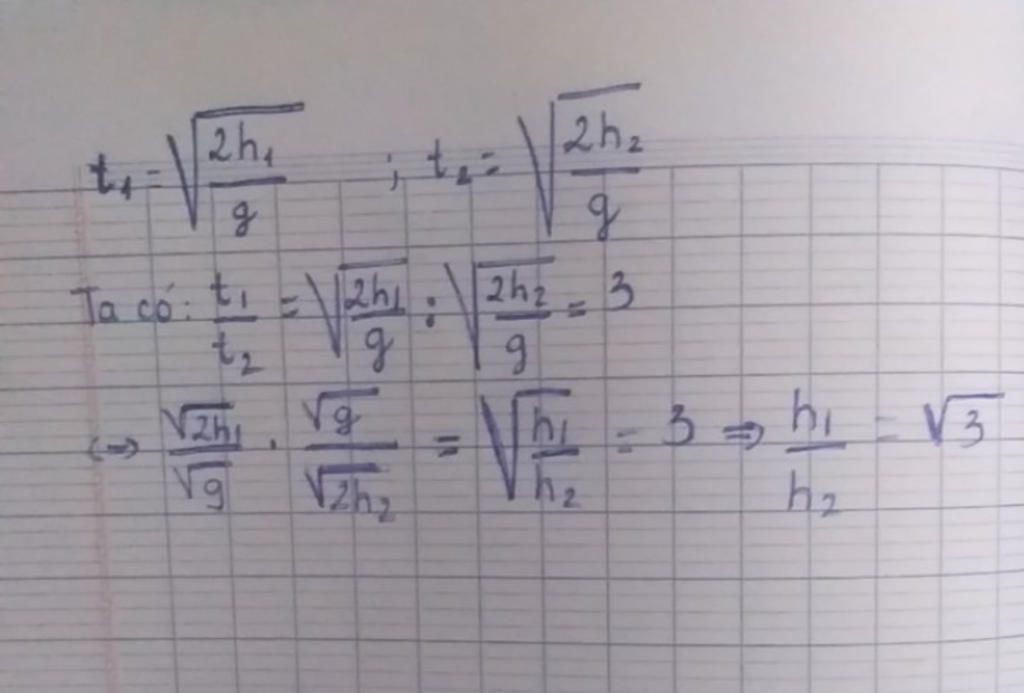 t₁ = √(2h₁/g) ; t₂ = √(2h₂/g)
Ta có: t₁/t₂ = √(2h₁/g) : √(2h₂/g) = 3
<=> √2h₁/√g . √g/√2h₂ = √(h₁/h₂) = 3 => h₁/h₂ = √3